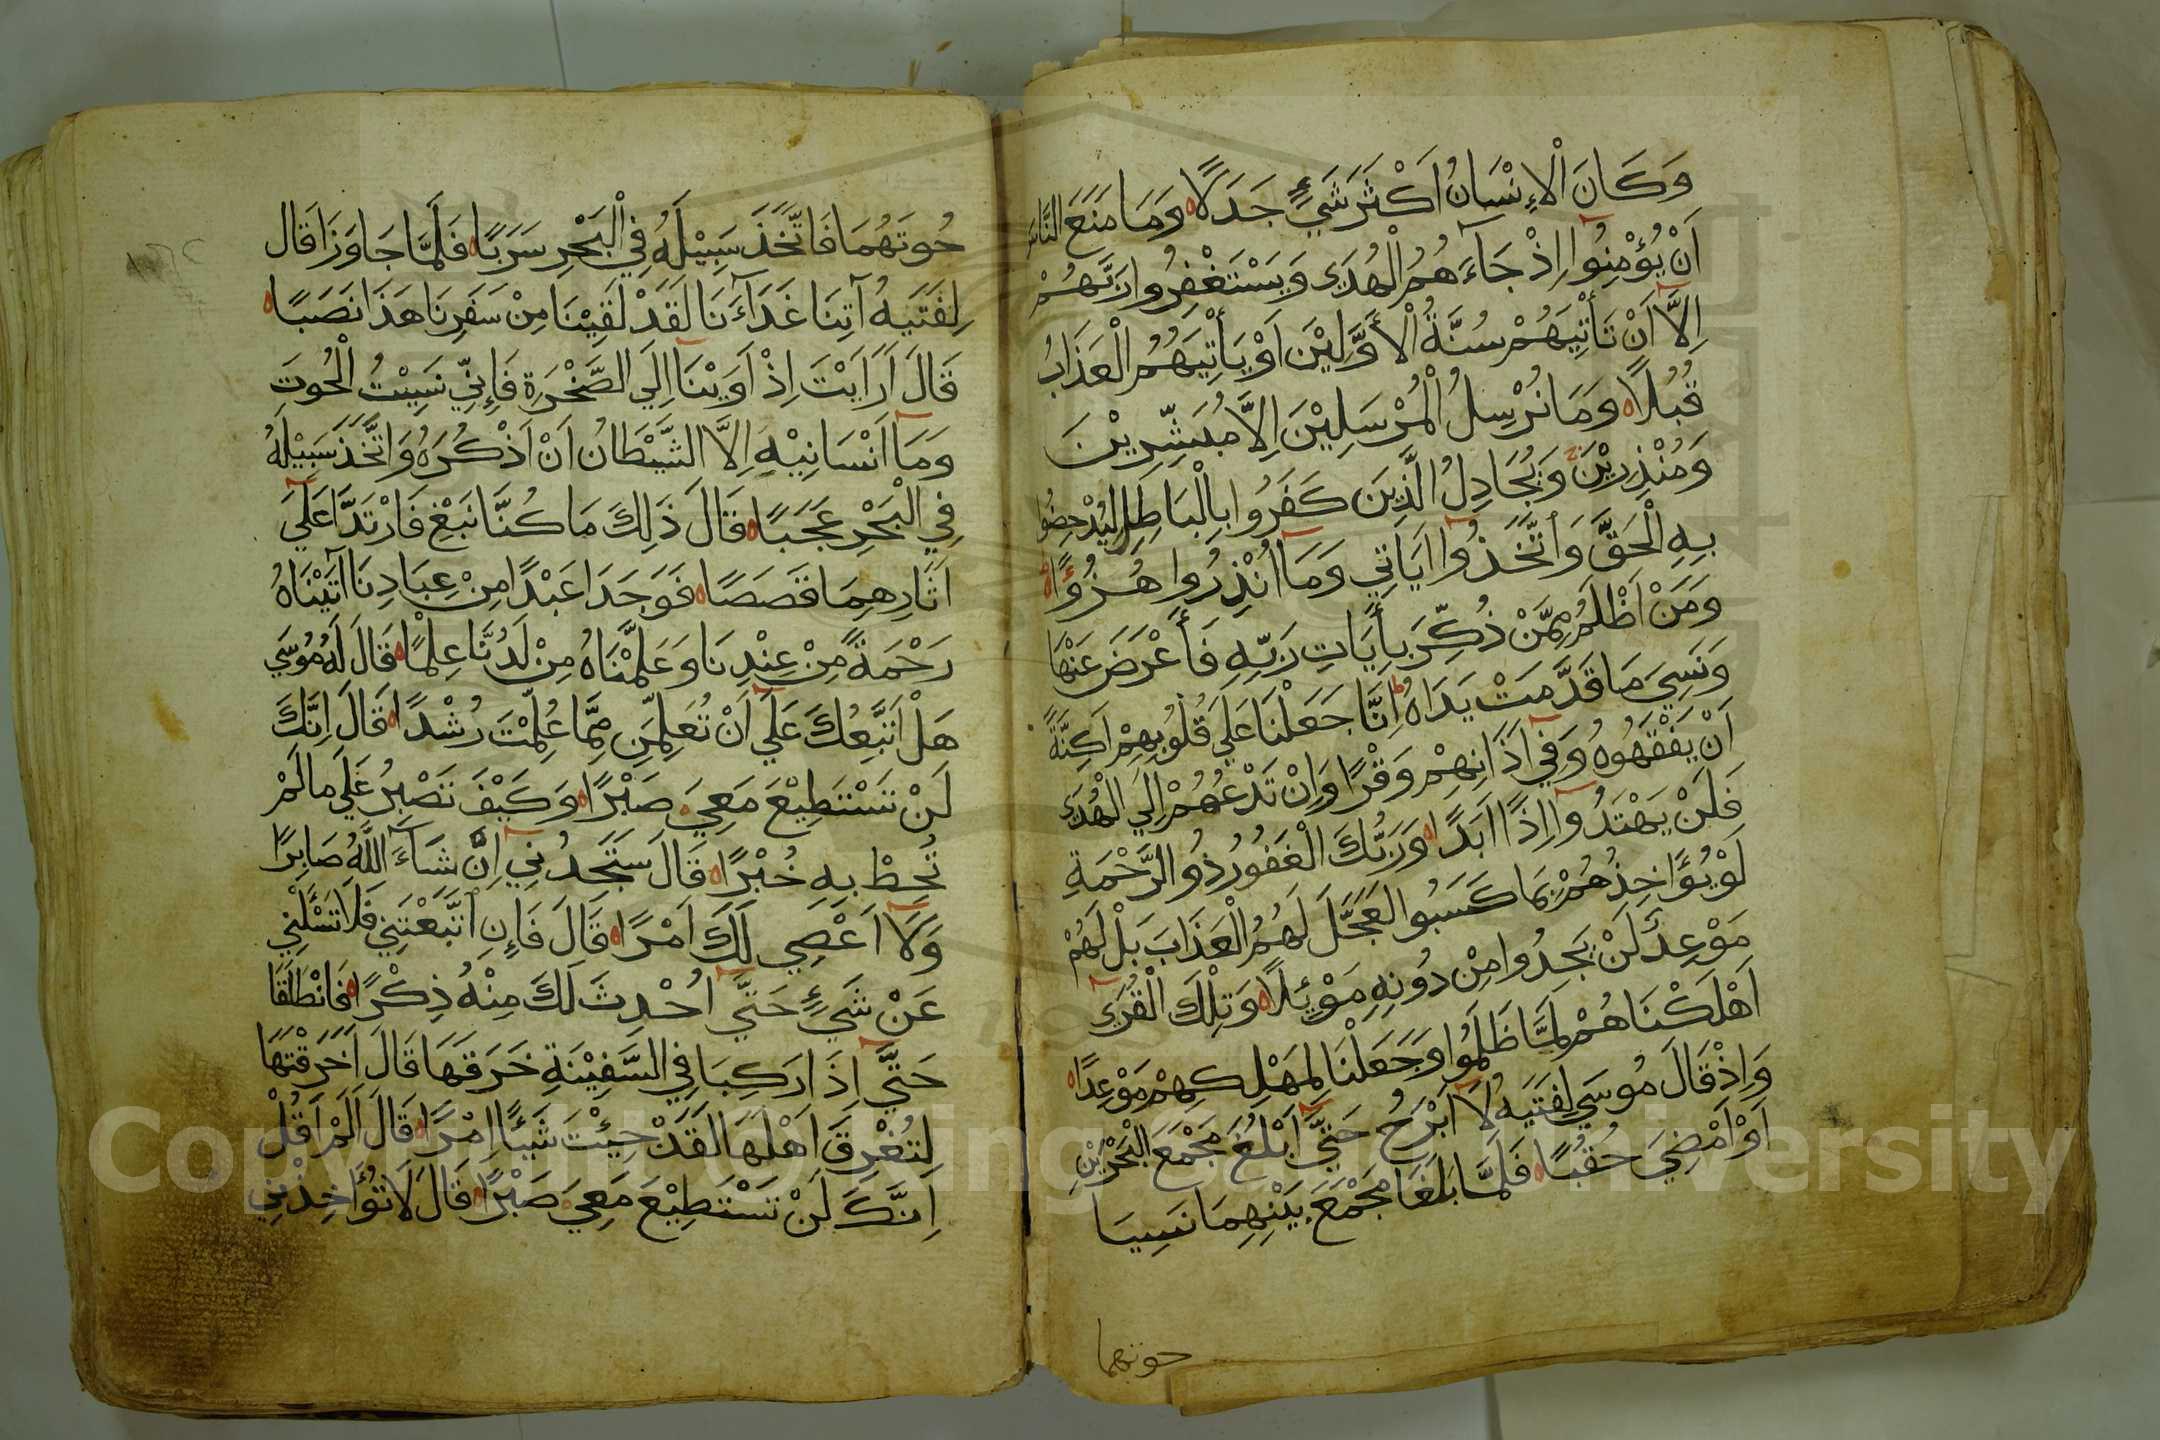 وَكَانَ الْاِنْسَانُ اَكْثَرَ شَيْءٍ جَدَلًا وَمَا مَنَعَ النَّاسَ
اَنْ يُؤْمِنُوا اِذْ جَآءَهُمُ الْهُدَى وَيَسْتَغْفِرُوا رَبَّهُمْ
اِلَّا اَنْ تَأْتِيَهُمْ سُنَّةُ الْأَوَّلِيْنَ اَوْ يَأْتِيَهُمُ الْعَذَابُ
قُبُلًا وَمَا نُرْسِلُ الْمُرْسَلِيْنَ اِلَّا مُبَشِّرِيْنَ
وَمُنْذِرِيْنَ وَيُجَادِلُ الَّذِيَن كَفَرُوا بِالْبَاطِلِ لِيُدْحِضُوا
بِهِ الْحَقَّ وَاتَّخَذُوا اٰيَاتِي وَمَا اُنْذِرُوا هُزُوًا
وَمَنْ اَظْلَمُ مِمَّنْ ذُكِّرَ بِأَيَاتِ رَبِّهِ فَأَعْرَضَ عَنْهَا
وَنَسِيَ مَا قَدَّمَتْ يَدَاهُ اِنَّا جَعَلْنَا عَلَى قُلُوبِهِمْ اَكِنَّةً
اَنْ يَفْقَهُوهُ وَفِي اٰذَانِهِمْ وَقْرًا وَاِنْ تَدْعُهُمْ اِلَى الْهُدَى
فَلَنْ يَهْتَدُوا اِذًا اَبَدًا وَرَبُّكَ الْغَفُورُ ذُو الرَّحْمَةِ
لَوْ يُؤَاخِذُهُمْ بِمَا كَسَبُوا لَعَجَّلَ لَهُمُ الْعَذَابَ بَلْ لَهُمْ
مَوْعِدٌ لَنْ يَجِدُوا مِنْ دُونِهِ مَوْئِلًا وَتِلْكَ الْقُرَى
اَهْلَكْنَاهُمْ لَمَّا ظَلَمُوا وَجَعَلْنَا لِمَهْلِكِهِمْ مَوْعِدًا
وَاِذْ قَالَ مُوسَى لِفَتَيهُ لَا اَبْرَحُ حَتَّى اَبْلُغَ مَجْمَعَ الْبَحْرَيْنِ
اَوْ اَمْضِيَ حُقُبًا فَلَمَّا بَلَغَا مَجْمَعَ بَيْنِهِمَا نَسِيَا
حوتهما
حُوتَهُمَا فَاتَّخَذَ سَبِيْلَهُ فِي الْبَحْرِ سَرَبًا فَلَمَّا جَاوَزَا قَالَ
لِفَتَيهُ آتِنَا غَدَآءَنَا لَقَدْ لَقِيْنَا مِنْ سَفَرِنَا هَذَا نَصَبًا
قَالَ اَرَاَيْتَ اِذْ اَوَيْنَا اِلَى الصَّخْرَةِ فَاِنِّي نَسِيْتُ الْحُوتَ
وَمَا اَنْسَانِيْهِ اِلَّا الشَّيْطَانُ اَنْ اَذْكُرَهُ وَاتَّخَذَ سَبِيْلَهُ
فِي الْبَحْرِ عَجَبًا قَالَ ذَلِكَ مَا كُنَّا نَبْغِ فَارْتَدَّا عَلَى
اٰثَارِهِمَا قَصَصًا فَوَجَدَا عَبْدًا مِنْ عِبَادِنَا آتَيْنَاهُ
رَحْمَةً مِنْ عِنْدِنَا وَعَلَّمْنَاهُ مِنْ لَدُنَّا عِلْمًا قَالَ لَهُ مُوسَى
هَلْ اَتَّبِعُكَ عَلَى اَنْ تُعَلِّمَنِ مِمَّا عُلِّمْتَ رُشْدًا قَالَ اِنَّكَ
لَنْ تَسْتَطِيْعَ مَعِيَ صَبْرًا وَكَيْفَ تَصْبِرُ عَلَى مَا لَمْ
تُحِطْ بِهِ خُبْرًا قَالَ سَتَجِدُنِي اِنْ شَآءَ اللّٰهُ صَابِرًا
وَلَا اَعْصِي لَكَ اَمْرًا قَالَ فَاِنِ اتَّبَعْتَنِي فَلَا تَسْئَلْنِي
عَنْ شَيْءٍ حَتَّى اُحْدِثَ لَكَ مِنْهُ ذِكْرًا فَانْطَلَقَا
حَتَّى اِذَا رَكِبَا فِي السَّفِيْنَةِ خَرَقَهَا قَالَ اَخَرَقْتَهَا
لِتُغْرِقَ اَهْلَهَا لَقَدْ جِئْتَ شَيْئًا اِمْرًا قَالَ اَلَمْ اَقُلْ
اِنَّكَ لَنْ تَسْتَطِيْعَ مَعِيَ صَبْرًا قَالَ لَا تُؤَاخِذْنِي
Copyright © King Saud University